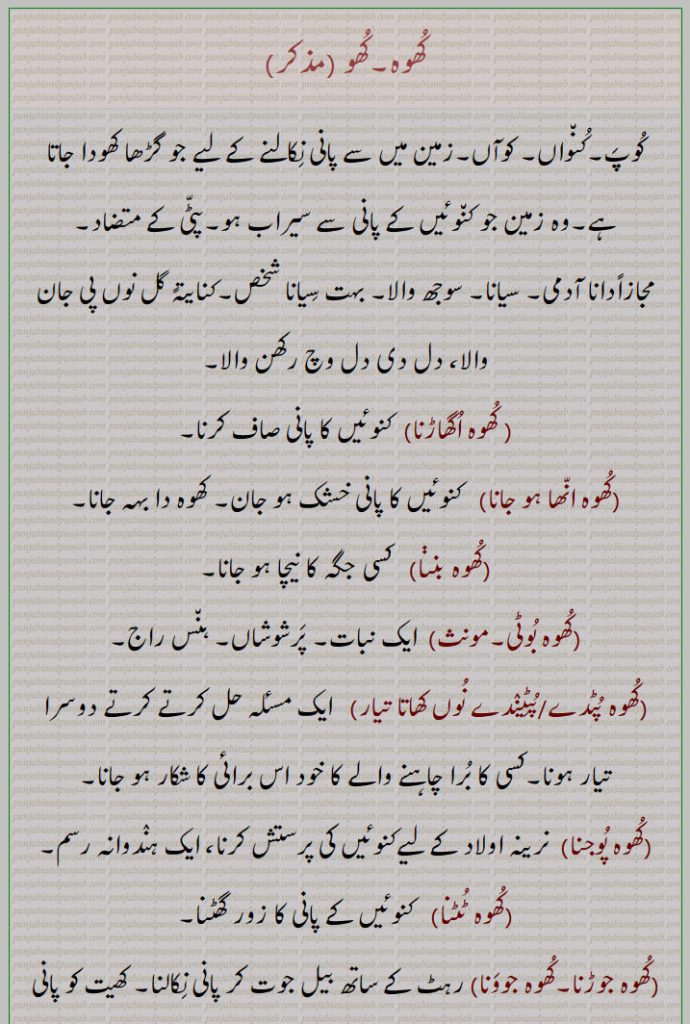 کُھوہ۔کُھو (مذکر)
کُوپَ۔کُنّواں۔ کوآں۔زمین میں سے پانی نِکالنے کے لیے جو گڑھا کھودا جاتا
ہے۔وہ زمین جو کنّوئیں کے پانی سے سیراب ہو۔پٹّی کے متضاد۔
مجازاًدانا آدمی۔ سیانا۔ سوجھ والا۔ بہت سِیانا شخص۔کنایتۃً گل نوں پی جان
والا، دل دی دل وچ رکھن والا۔
( کُھوہ اُگھاڑنا) کنوئیں کا پانی صاف کرنا۔
(کُھوہ انّھا ہو جانا) کنوئیں کا پانی خشک ہو جان۔ کھوہ دا بہہ جانا۔
(کُھوہ بننا) کسی جگہ کا نیچا ہو جانا۔
(کُھوہ بُوٹی۔مونث) ایک نبات۔ پَرشوشاں۔ ہنّس راج۔
(کُھوہ پُٹدے/پُٹیندے نُوں کھاتا تیار) ایک مسئلہ حل کرتے کرتے دوسرا
تیار ہونا۔کسی کا بُرا چاہنے والے کا خود اس برائی کا شکار ہو جانا۔
(کُھوہ پُوجنا) نرینہ اولاد کے لیےکنوئیں کی پرستش کرنا، ایک ہندوانہ رسم۔
(کُھوہ ٹُٹنا) کنوئیں کے پانی کا زور گھٹنا۔
(کُھوہ جوڑنا۔کُھوہ جووَنا) رہٹ کے ساتھ بیل جوت کر پانی نِکالنا۔ کھیت کو پانی